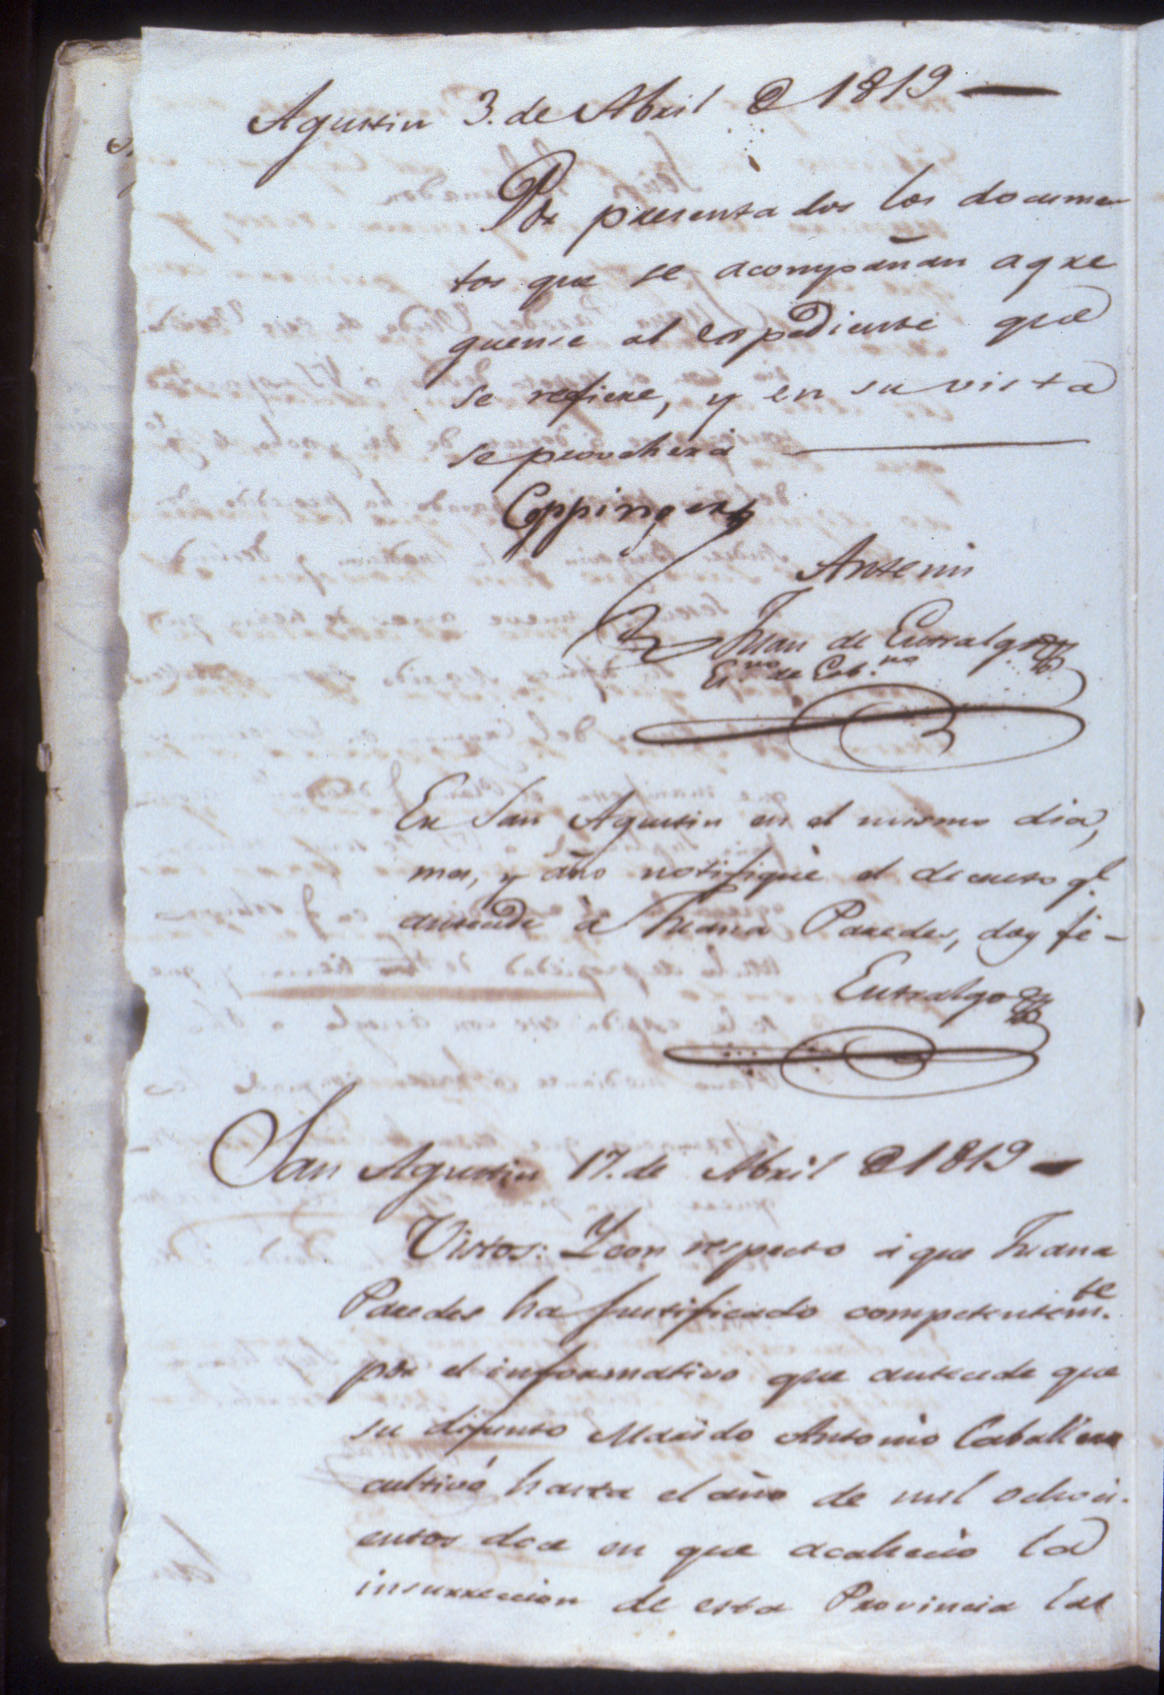 Agustin 3. de Abril de 1819
Por presentados los documen
tos que se acompañan agre
guense al expediente que
se refiere, y en su vista
se proveherá
Coppinger
Ante mi
Juan de Entralgo
Es.no de Gob.no
En San Agustin en el mismo dia,
mes, y año notifiqué el decreto q.e
antecede á Juana Paredes, doy fé
Entralgo
San Agustin 17. de Abril de 1819
Vistos: Y con respecto á que Juana
Paredes ha justificado competentem.te
por el informativo que antecede que
su difunto Marido Antonio Caballero
cultivó hasta el año de mil ochoci
entos doce en que acaheció la
insurreccion de esta Provincia las